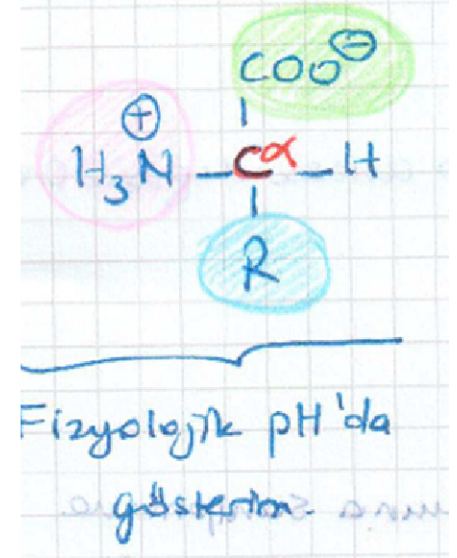 COO⊖
⊕
H₃N – Cα – H
R
Fizyolojik pH'da
gösterim.